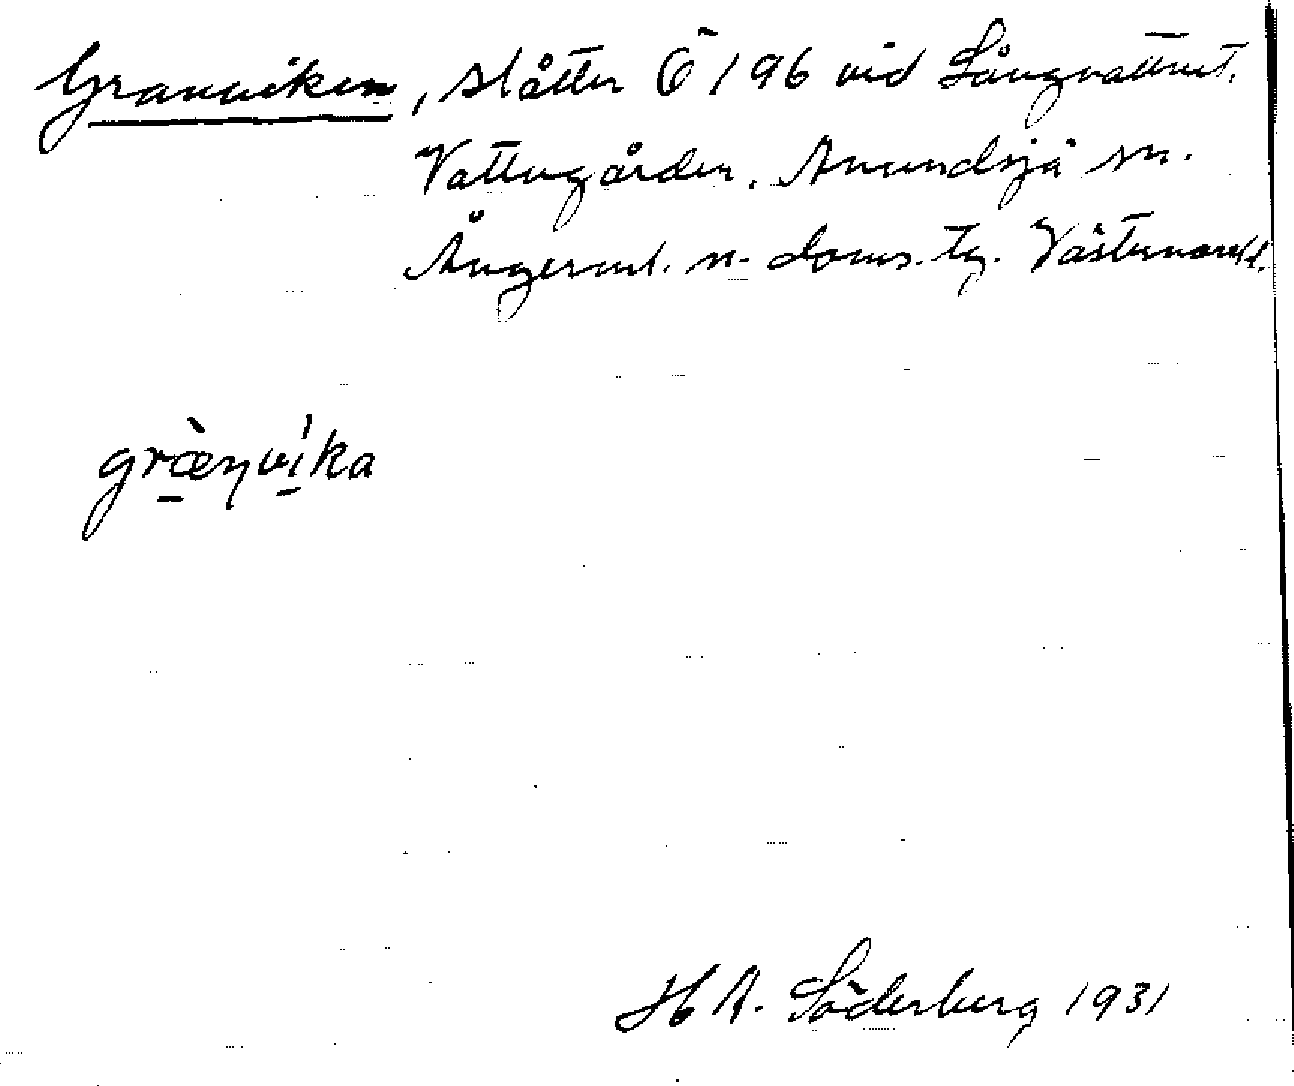 Granviken, slåtter Ö 196 vid Långvattnet.
Vattugården. Anundsjö sn.
Ångerml. n. doms. tg. Västernorrl.
græ̀nvíka
H A. Söderberg 1931